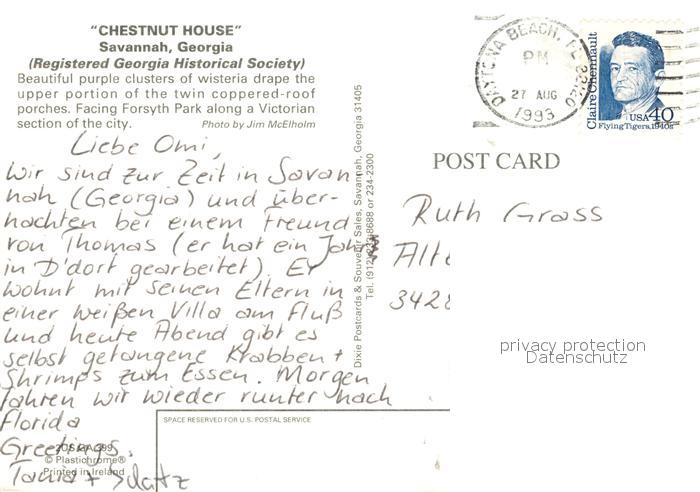 "CHESTNUT HOUSE"
Savannah, Georgia
(Registered Georgia Historical Society)
Beautiful purple clusters of wisteria drape the
upper portion of the twin coppered-roof
porches. Facing Forsyth Park along a Victorian
section of the city.
Photo by Jim McElholm
Liebe Omi,
wir sind zur Zeit in Savan
nah (Georgia) und über-
nachten bei einem Freund
von Thomas (er hat ein Jahr
in D'dorf gearbeitet). Er
wohnt mit seinen Eltern in
einer weißen Villa am Fluß
und heute Abend gibt es
selbst gefangene Krabben +
Shrimps zum Essen. Morgen
fahren wir wieder runter nach
Florida
Greetings.
Dixie Postcards & Souvenir Sales, Savannah, Georgia 31405
Tel. (912) 233-8688 or 234-2300
© Plastichrome®
Printed in Ireland
SPACE RESERVED FOR U.S. POSTAL SERVICE
DAYTONA BEACH, FL
PM
27 AUG
1993
Claire Chennault
USA 40
Flying Tigers, 1940s
POST CARD
Ruth Grass
Alte
3428
privacy protection
Datenschutz